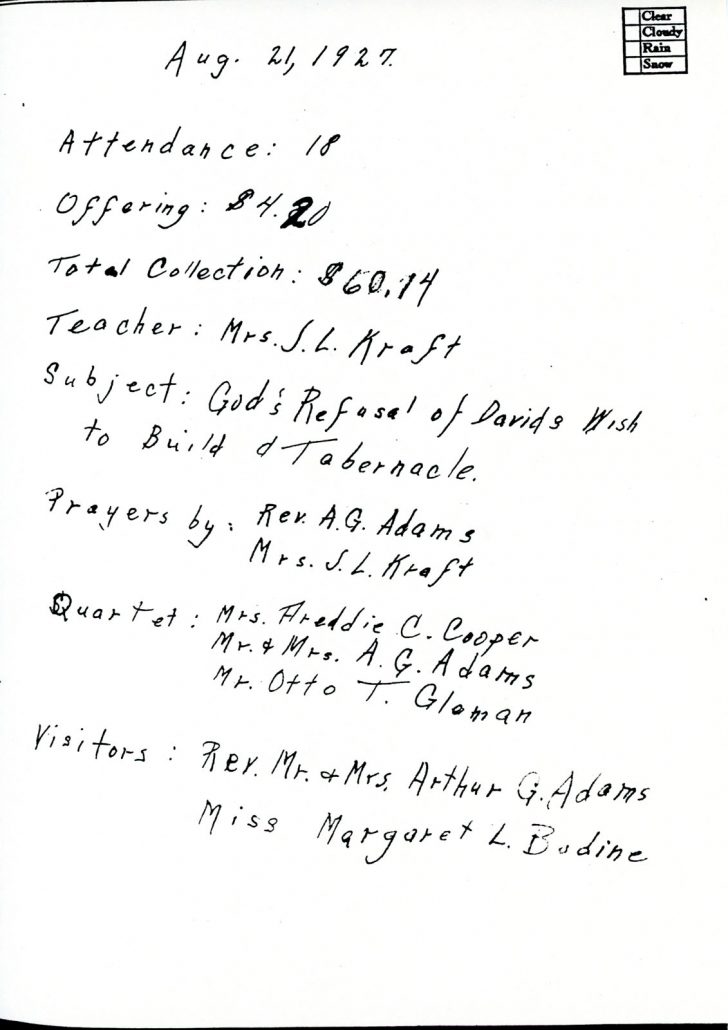 Clear
Cloudy
Rain
Snow
Aug. 21, 1927.
Attendance: 18
Offering: $4.20
Total Collection: $60.14
Teacher: Mrs. S. L. Kraft
Subject: God's Refusal of Davids Wish
to Build a Tabernacle.
Prayers by: Rev. A.G. Adams
Mrs. S. L. Kraft
Quartet: Mrs. Freddie C. Cooper
Mr. & Mrs. A. G. Adams
Mr. Otto T. Gloman
Visitors: Rev. Mr. & Mrs. Arthur G. Adams
Miss Margaret L. Bodine